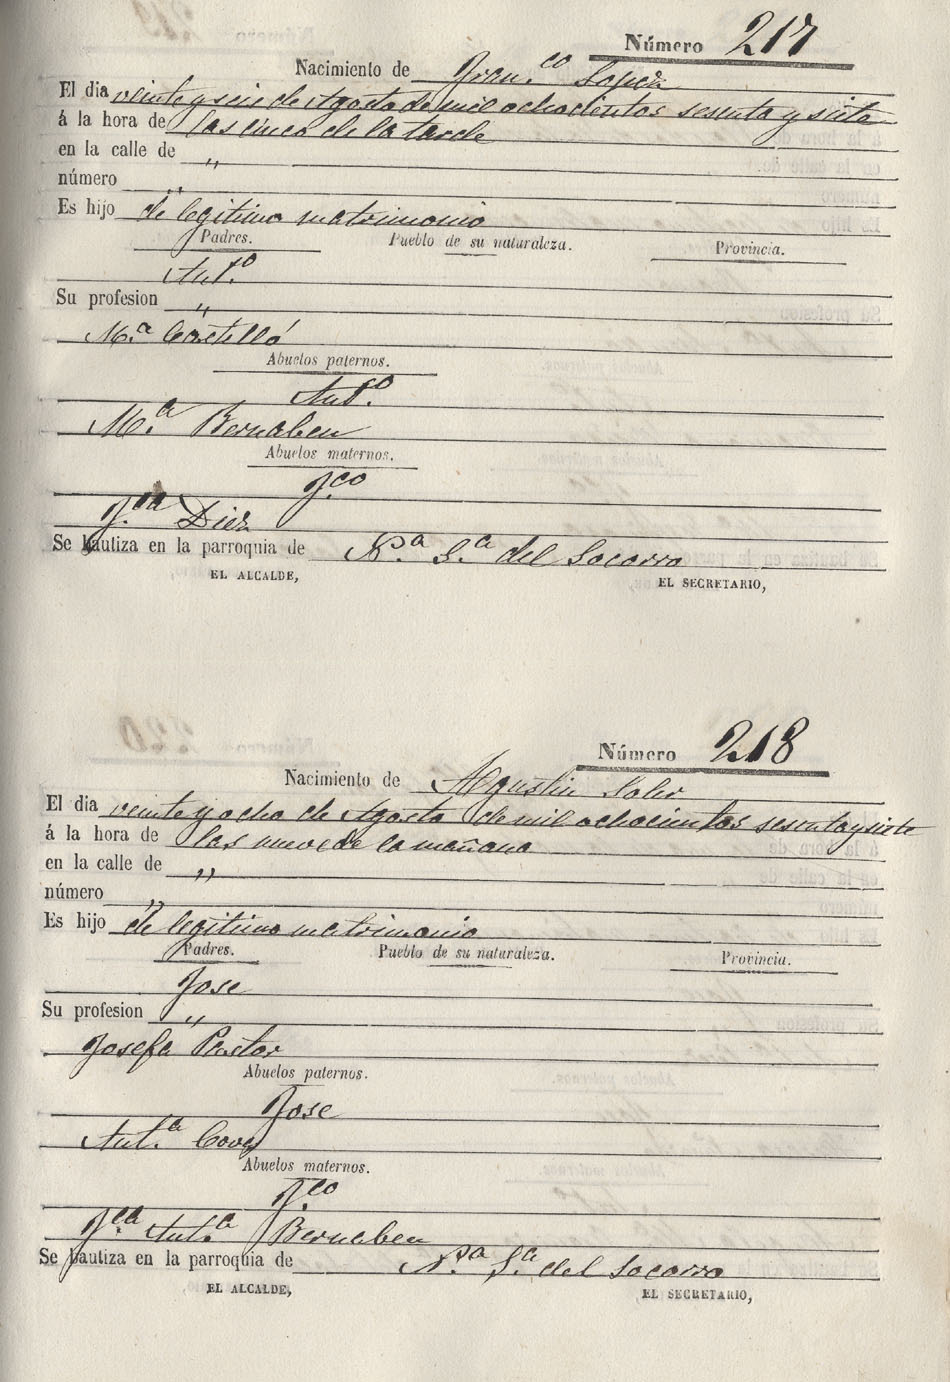 Número 217
Nacimiento de Fran.co Lopez
El dia veinte y seis de Agosto de mil ochocientos sesenta y siete
á la hora de las cinco de la tarde
en la calle de "
número "
Es hijo de legitimo matrimonio
Padres. Pueblo de su naturaleza. Provincia.
Ant.o
Su profesion "
M.a Castelló
Abuelos paternos.
Ant.o
M.a Bernabeu
Abuelos maternos.
F.co
F.ca Diez
Se bautiza en la parroquia de N.a S.a del Socorro
EL ALCALDE, EL SECRETARIO,
Número 218
Nacimiento de Agustin Soler
El dia veinte y ocho de Agosto de mil ochocientos sesenta y siete
á la hora de las nueve de la mañana
en la calle de "
número "
Es hijo de legitimo matrimonio
Padres. Pueblo de su naturaleza. Provincia.
Jose
Su profesion "
Josefa Pastor
Abuelos paternos.
Jose
Ant.a Cova
Abuelos maternos.
F.co
F.ca Ant.a Bernabeu
Se bautiza en la parroquia de N.a S.a del Socorro
EL ALCALDE, EL SECRETARIO,